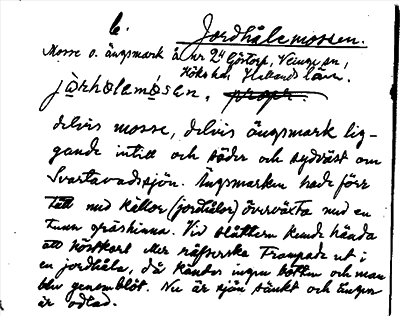 6.
Jordhålemossen.
Mosse o. ängsmark å nr 2 Göstorp, Veinge sn,
Höks hd, Hallands län.
delvis mosse, delvis ängsmark lig-
gande intill och söder och sydväst om
Svartavadsjön. Ängsmarken hade förr
tätt med källor (jordhålor) överväxta med en
tunn gräshinna. Vid slåttern kunde hända
att höstkarl eller räfserska trampade ut i
en jordhåla, då kändes ingen botten och man
blev genomblöt. Nu är sjön sänkt och ängen
är odlad.